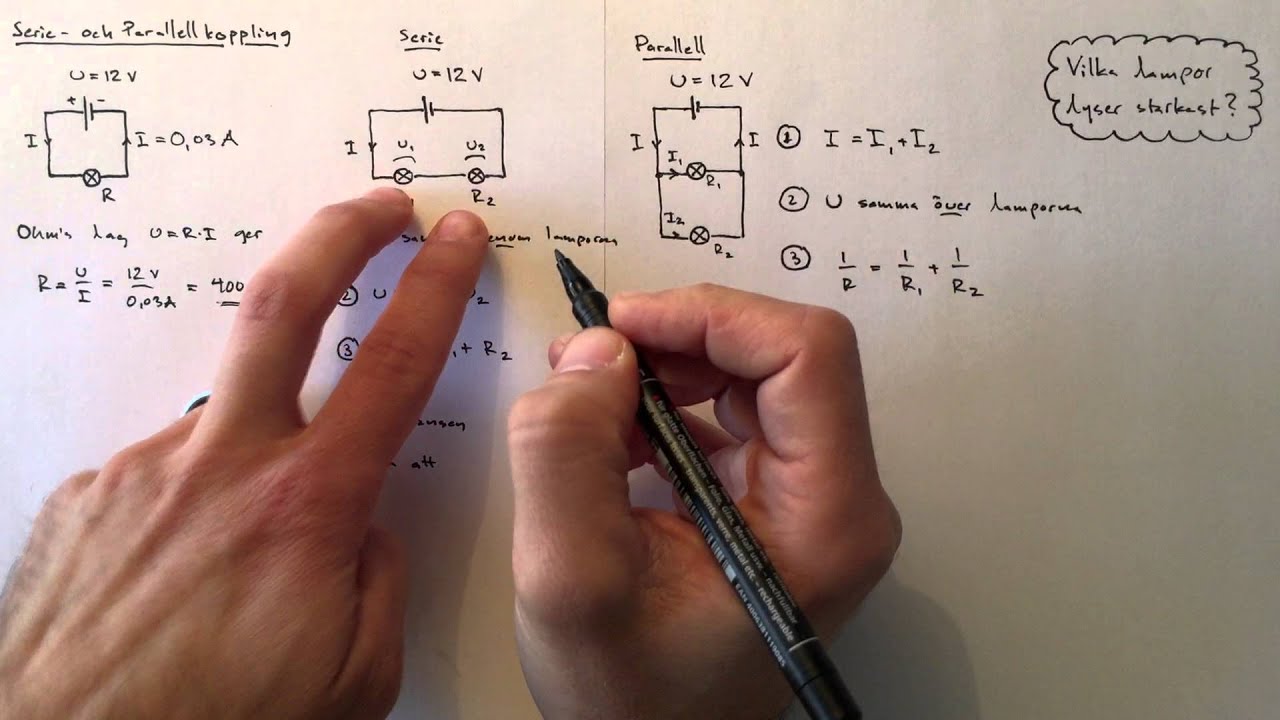 Serie- och Parallellkoppling
U = 12 V
+ -
I
I = 0,03 A
R
Ohm's lag U = R·I ger
R = U/I = 12 V/0,03 A = 400
Serie
U = 12 V
I
U₁ U₂
R₂
lamporna
② U ₂
③ ₁ + R₂
att
Parallell
U = 12 V
I I
I₁
R₁
I₂
R₂
① I = I₁ + I₂
② U samma över lamporna
③ 1/R = 1/R₁ + 1/R₂
Vilka lampor
lyser starkast?